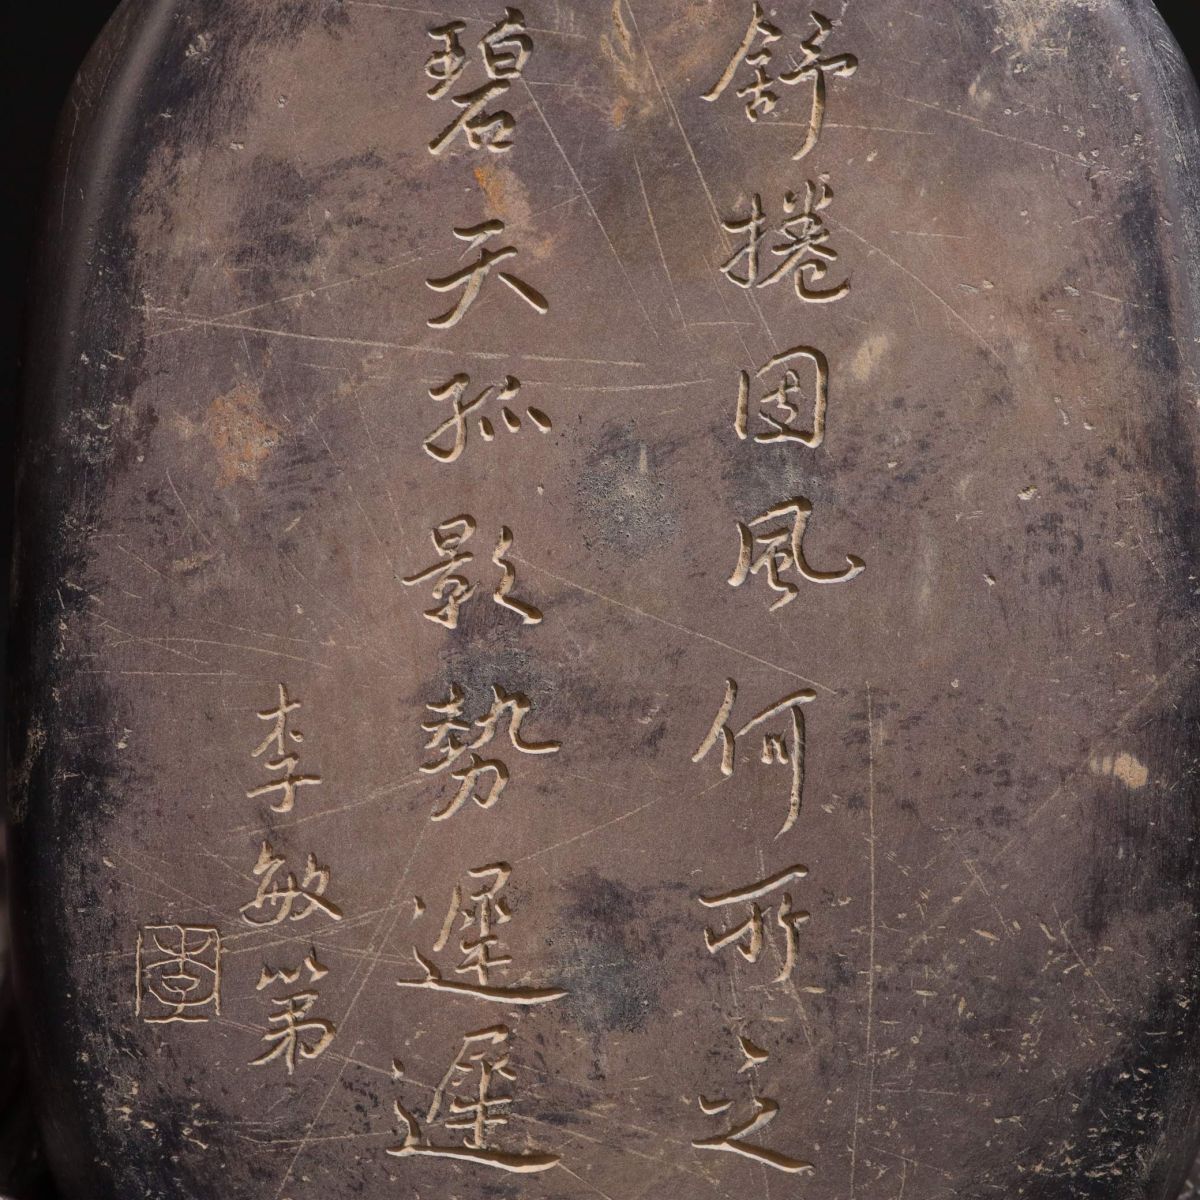 舒捲因風何所之
碧天孤影勢遲遲
李敏第
李